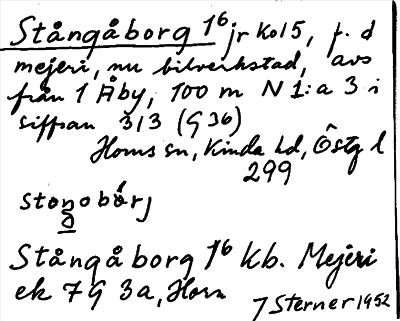 Stångåborg 16 jr ko15, f. d
mejeri, nu bilverkstad, avs
från 1 Åby, 100 m N 1:a 3 i
siffran 313 (G 36)
Horns sn, Kinda hd, Östg l
299
stoŋobórj
Stångåborg 16 kb. Mejeri
ek 7G 3a, Horn
J Sterner 1952